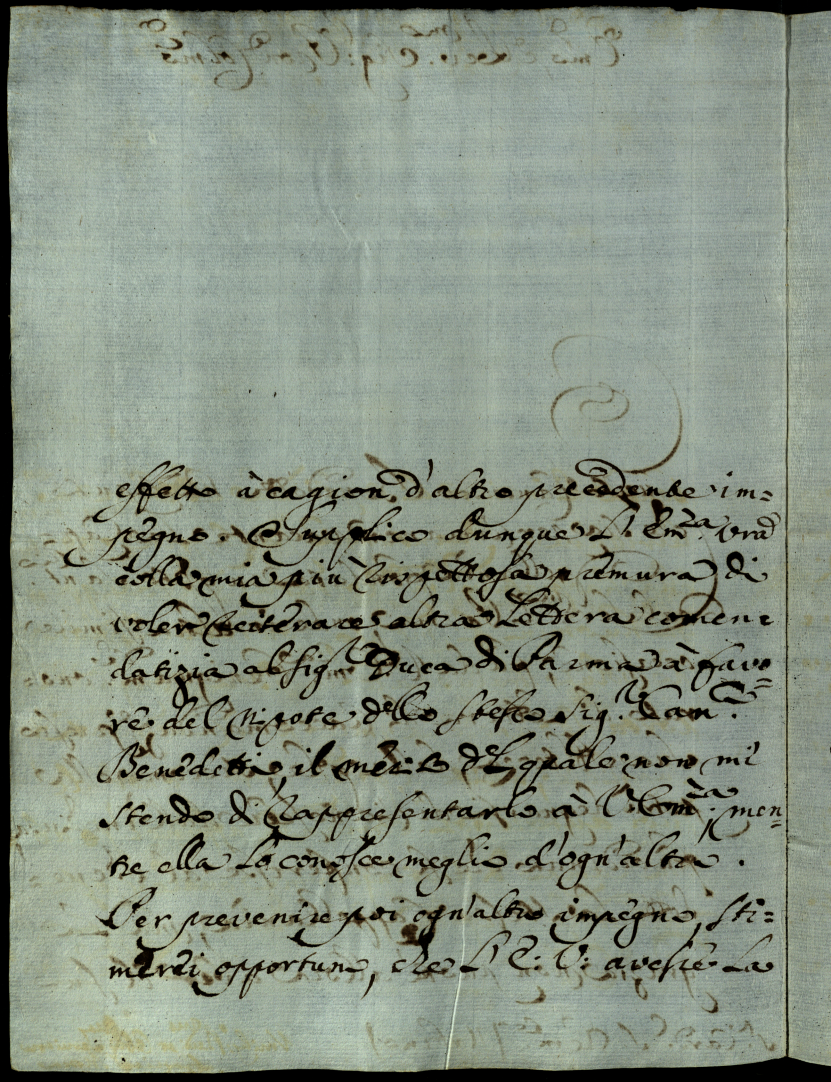 effetto à cagion d'altro precedente im=
pegno. Supplico dunque L'Em.za Vra
colla mia più rispettosa premura di
voler reiterare altra Lettera comen=
datizia al sig.r Duca di Parma à favo=
re del nipote dello stesso sig.r Can.co
Benedetti, il merito del quale non mi
stendo di rappresentarlo à V. Em.za, men=
tre ella lo conosce meglio d'ogn'altra.
Per prevenire poi ogn'altro impegno, sti=
merei opportuno, che L'E: V: avesse la